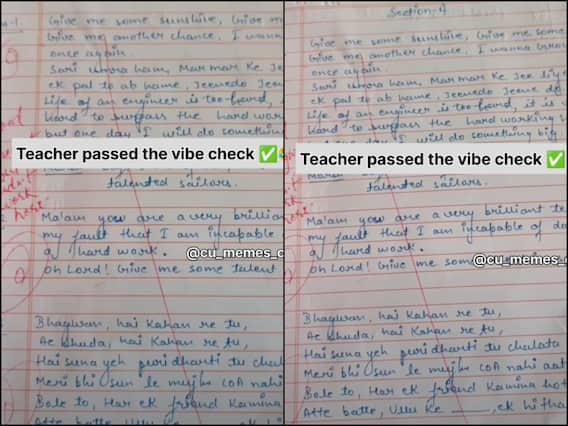 Give me some sunshine, Give me
Give me another chance, I wanna
once again.
Sari umra ham, Mar mar ke Jee
ek pal to ab hame, Jeenedo Jeene
Life of an engineer is too hard,
hard to surpass the hard work
but one day I will do something
Teacher passed the vibe check ✅
talented sailors.
Ma'am you are a very brillian
my fault that I am incapable
of hard work.
@cu_memes_c
Oh Lord! Give me some talent
Bhagwan, hai Kahan re tu,
Ae khuda, hai Kahan re tu,
Hai suna yeh puri dharti tu chala
Meri bhi sun le mujhe COA nahi
Bole to, Har ek friend Kamina
Atte batte, Ullu Ke
Section-4
Give me some sunshine, Give some
Give me another chance, I wanna Grow
once again.
Sari umra ham, Mar mar ke Jee liye
ek pal to ab hame, Jeenedo Jeene do
Life of an engineer is too hard, it is
hard to surpass the hard working
but one day I will do something big
Teacher passed the vibe check ✅
talented sailors.
Ma'am you are a very brilliant te
my fault that I am incapable of do
of hard work.
@cu_memes_
Oh Lord! Give me som
Bhagwan, hai Kahan re tu,
Ae khuda, hai Kahan re tu,
Hai suna yeh puri dharti tu chalata
Meri bhi sun le mujhe COA nahi aat
Bole to, Har ek friend Kamina hot
Atte batte, Ullu Ke ____, ek hi tha